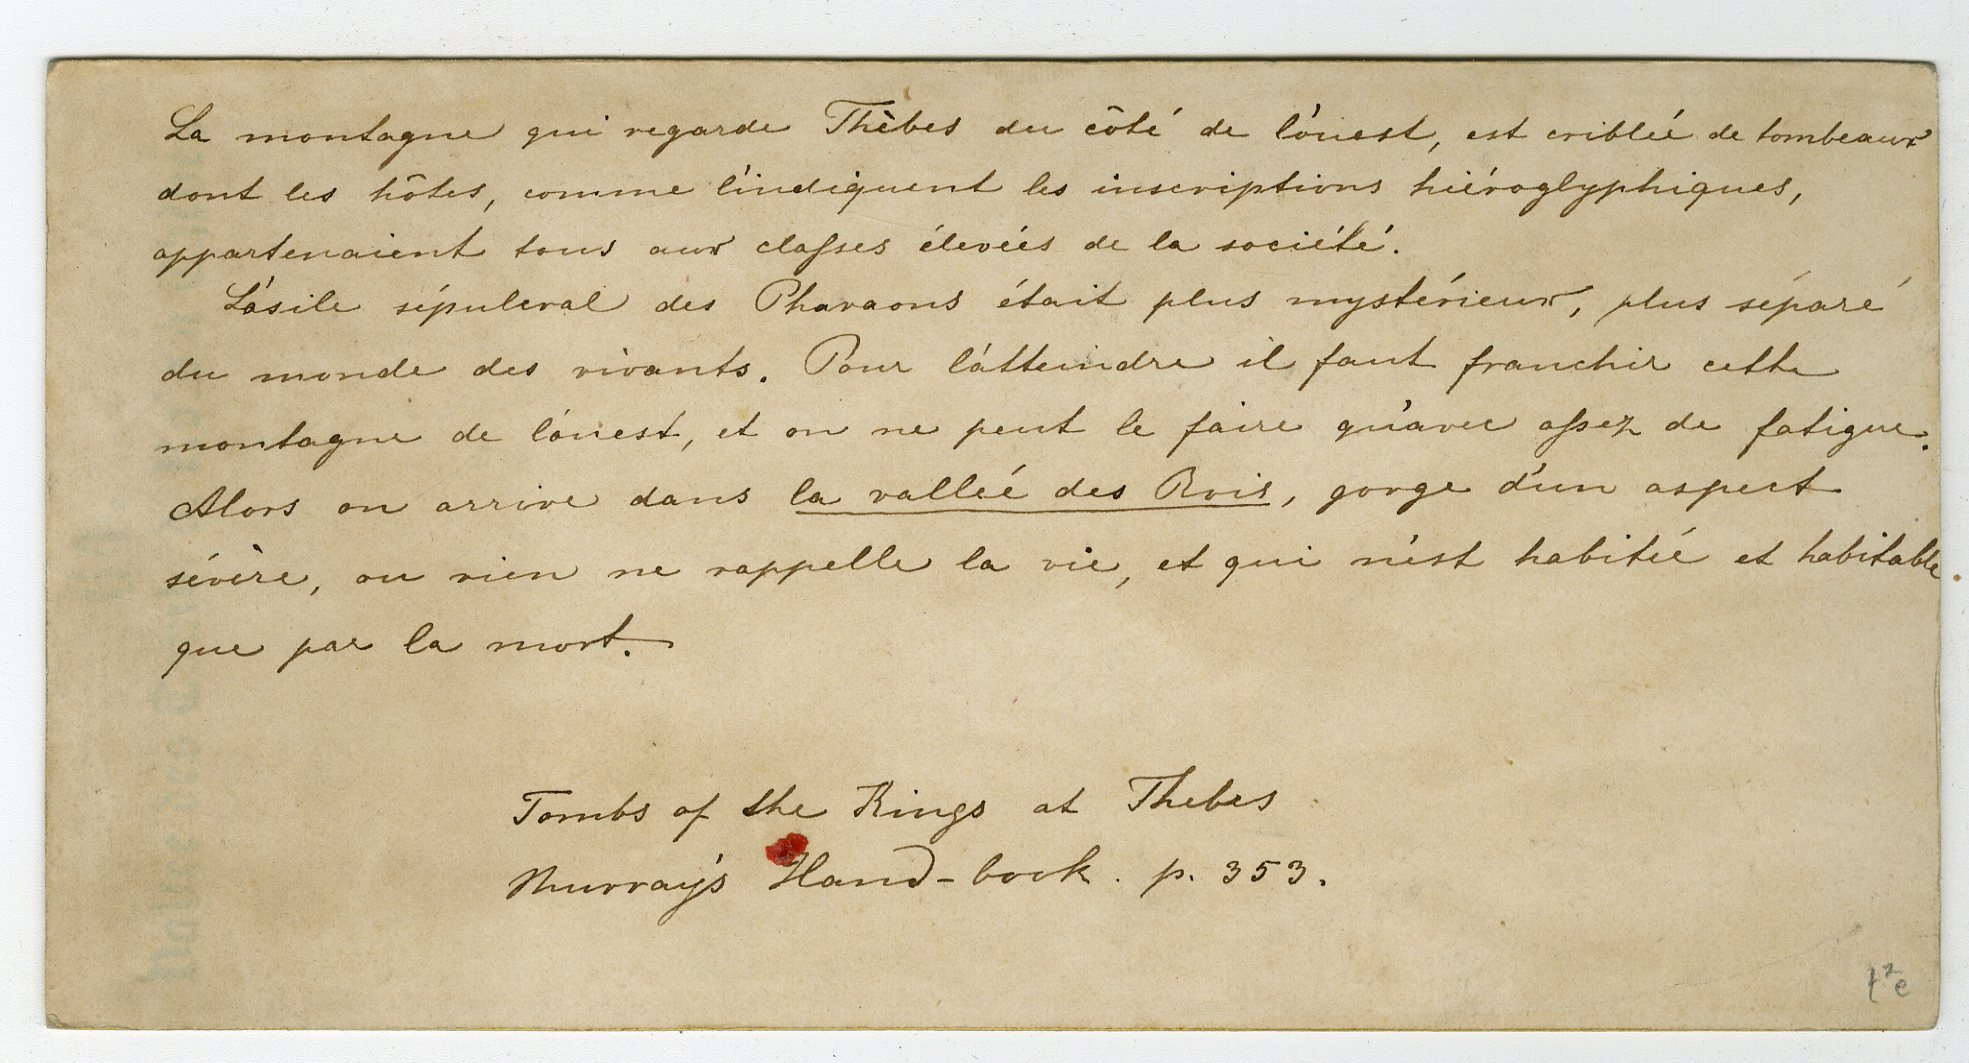 La montagne qui regarde Thèbes du côté de l'ouest, est criblée de tombeaux
dont les hôtes, comme l'indiquent les inscriptions hiéroglyphiques,
appartenaient tous aux classes élevées de la société.
L'asile sépulcral des Pharaons était plus mystérieux, plus séparé
du monde des vivants. Pour l'atteindre il faut franchir cette
montagne de l'ouest, et on ne peut le faire qu'avec assez de fatigue.
Alors on arrive dans la vallée des Rois, gorge d'un aspect
sévère, ou rien ne rappelle la vie, et qui n'est habitée et habitable
que par la mort.
Tombs of the Kings at Thebes
Murray's Hand-book. p. 353.